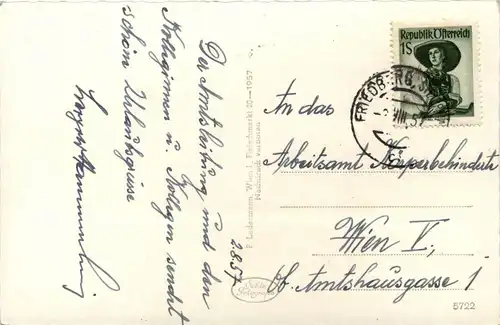 Der Amtsleitung und den
Kolleginnen u. Kollegen sendet
schöne Urlaubsgrüsse
2.8.57
P. Ledermann, Wien I, Fleischmarkt 20-1957
Nachdruck verboten
Echte
Republik Österreich
1S
FRIEDBERG, ST
VIII. 57
An das
Arbeitsamt Körperbehinderte
Wien V.,
Ob. Amtshausgasse 1
5722